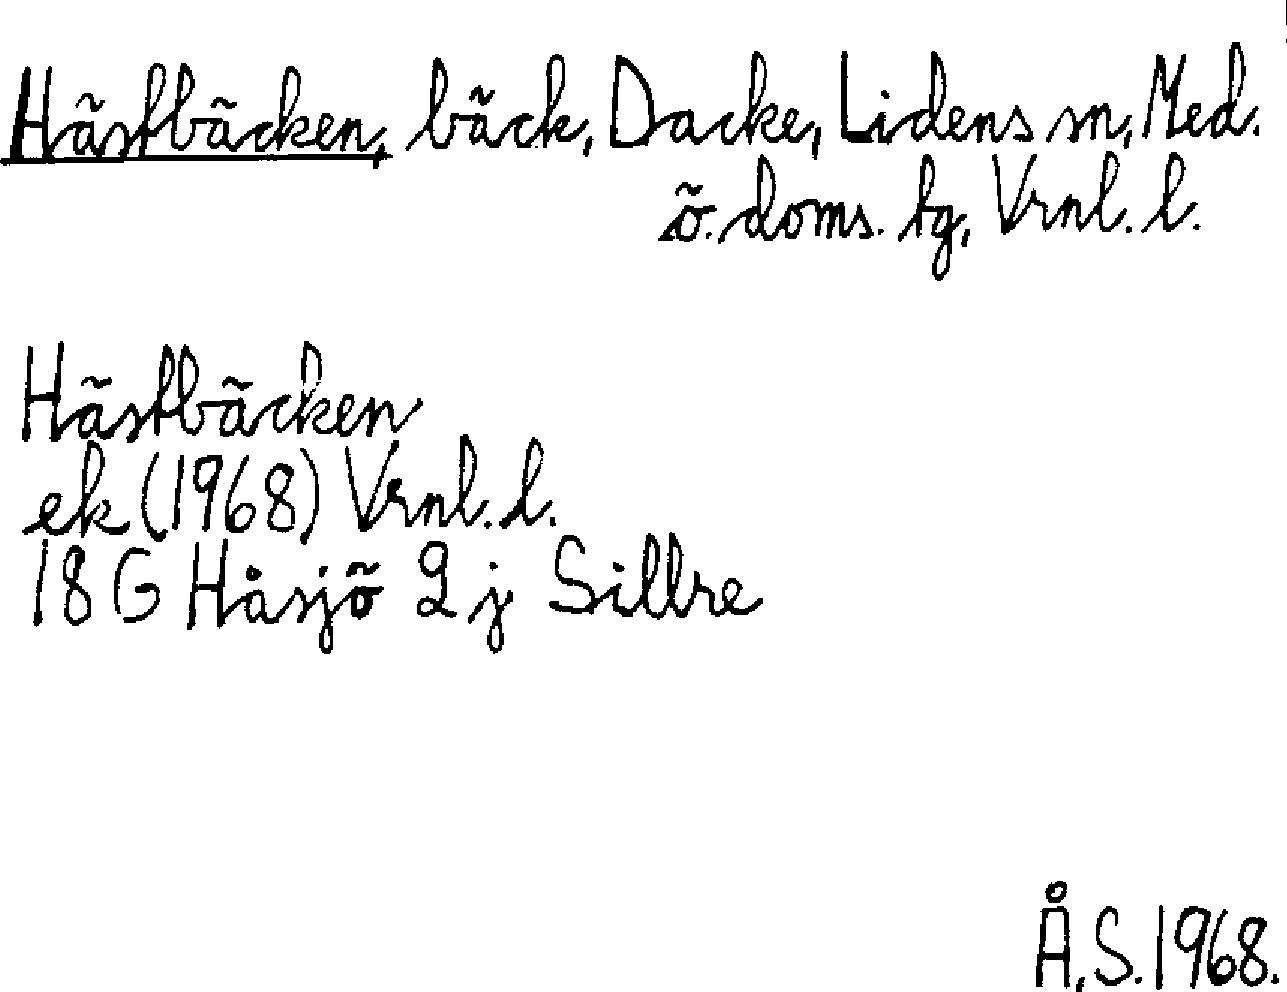 Hästbäcken, bäck, Dacke, Lidens sn, Med.
ö. doms. tg, Vrnl. l.
Hästbäcken
ek (1968) Vrnl. l.
18 G Håsjö 2 j Sillre
Å, S. 1968.